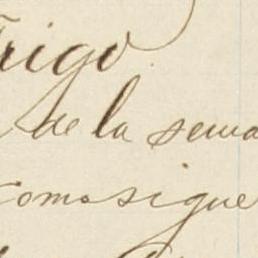 Trigo
de la sema
como sigue